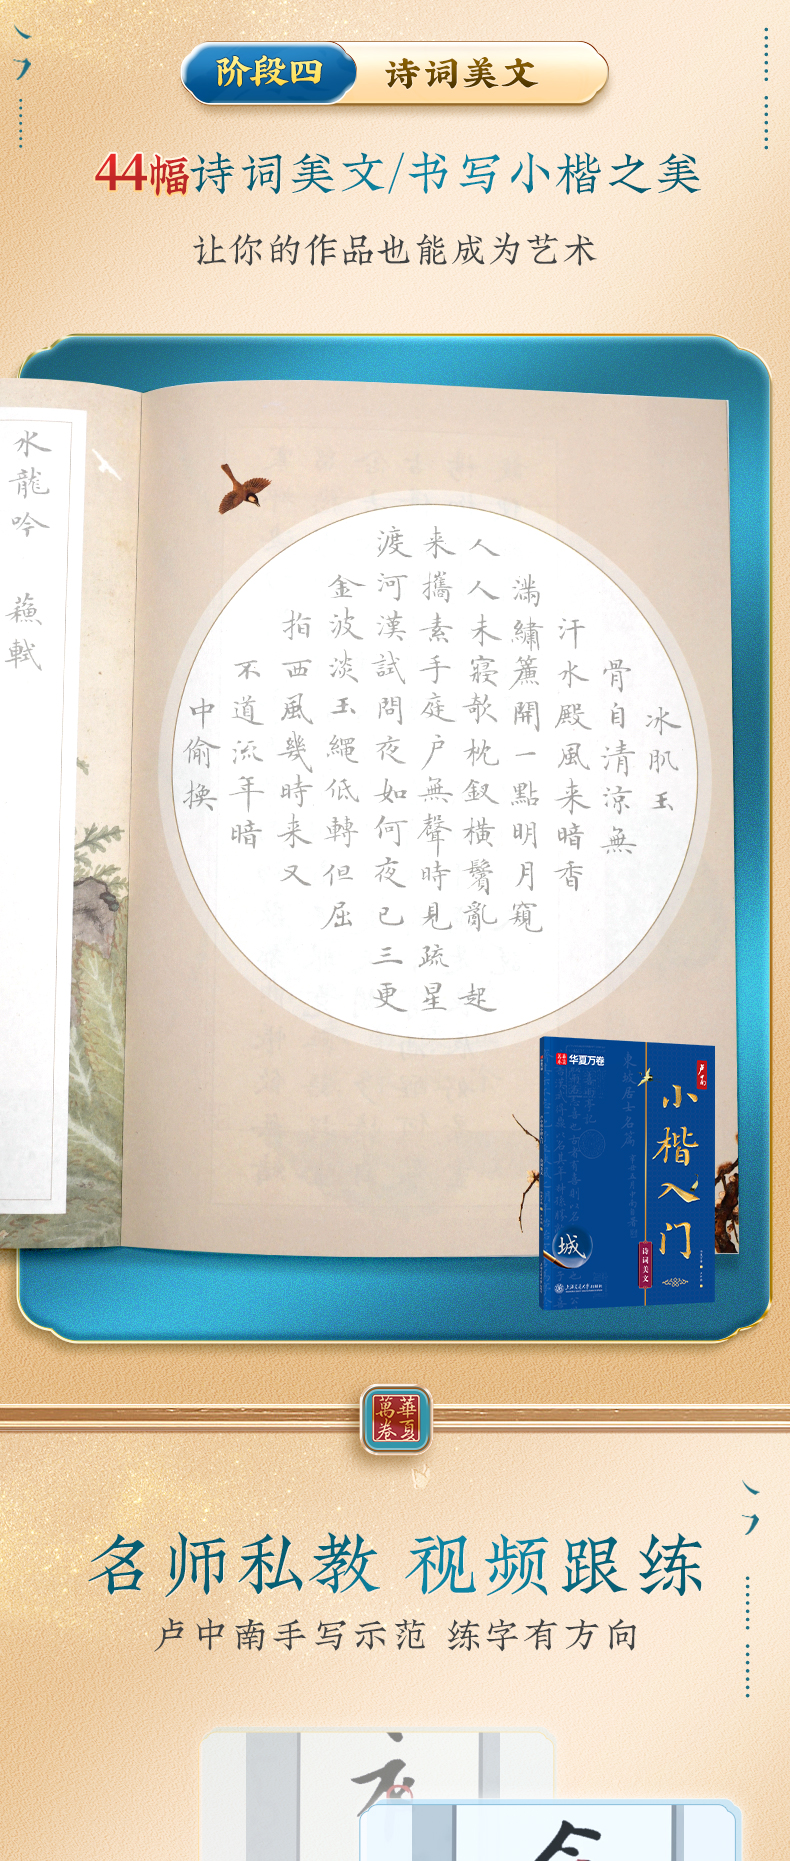 阶段四 诗词美文
44幅诗词美文/书写小楷之美
让你的作品也能成为艺术
冰肌玉
骨自清涼無
汗水殿風来暗香
满繡簾開一點明月窺
人人未寢欹枕釵橫鬢亂起
来攜素手庭户無聲時見疏星
渡河漢試問夜如何夜已三更
金波淡玉繩低轉但屈
指西風幾時来又
不道流年暗
中偷换
水龍吟 蘓軾
華夏萬卷
华夏万卷
卢中南
小楷入门
诗词美文
東坡居士名篇
城
上海交通大学出版社
華夏萬卷
名师私教 视频跟练
卢中南手写示范 练字有方向